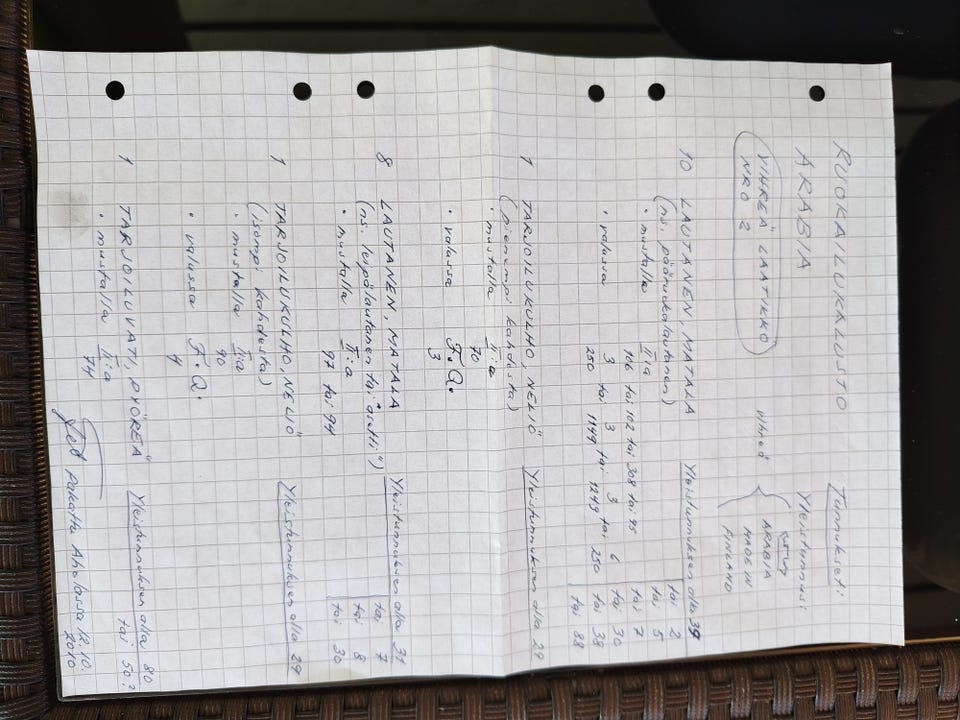 RUOKAILUKALUSTO Tunnukset:
ARABIA Yleistunnus:
VIHREÄ LAATIKKO
NRO 2
Vihreä
ARABIA
MADE IN
FINLAND
10 LAUTANEN, MATALA Yleistunnuksen alla 39
(ns. pääruokalautanen) tai 2
• mustalla II:a tai 5
106 tai 102 tai 308 tai 45 tai 7
3 3 3 6 tai 30
• valussa 250 tai 1149 tai 1249 tai 250 tai 38
tai 88
1 TARJOILUKULHO, NELIÖ Yleistunnuksen alla 29
(pienempi kahdesta)
• mustalla II:a
70
• valussa F.Q.
3
8 LAUTANEN, MATALA Yleistunnuksen alla 31
(ns. leipälautanen tai "asetti") tai 7
• mustalla II:a tai 8
97 tai 94 tai 30
1 TARJOILUKULHO, NELIÖ Yleistunnuksen alla 29
(isompi kahdesta)
• mustalla II:a
90
• valussa F.Q.
4
1 TARJOILUVATI, PYÖREÄ Yleistunnuksen alla 80
• mustalla II:a tai 50?
74
pakattu Aholassa 12.10.
2010